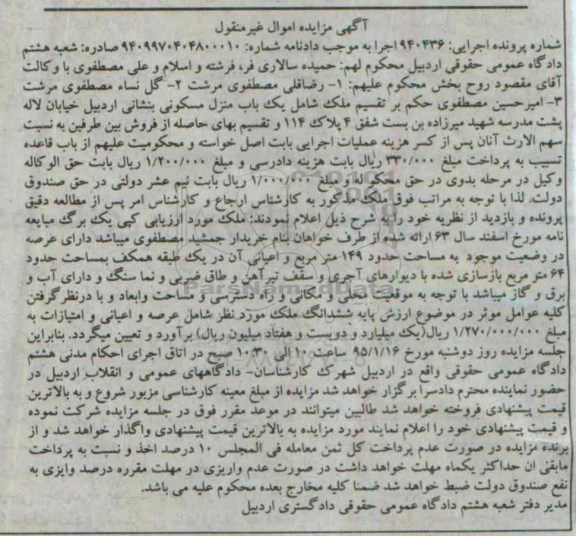 آگهی مزایده اموال غیرمنقول
شماره پرونده اجرایی: ۹۴۰۴۳۶ اجرا به موجب دادنامه شماره: ۹۴۰۹۹۷۰۴۰۴۸۰۰۰۱۰ صادره: شعبه هشتم
دادگاه عمومی حقوقی اردبیل محکوم لهم: حمیده سالاری فر، فرشته و اسلام و علی مصطفوی با وکالت
آقای مقصود روح بخش محکوم علیهم: ۱- رضاقلی مصطفوی مرشت ۲- گل نساء مصطفوی مرشت
۳- امیرحسین مصطفوی حکم بر تقسیم ملک شامل یک باب منزل مسکونی بنشانی اردبیل خیابان لاله
پشت مدرسه شهید میرزاده بن بست شفق ۴ پلاک ۱۱۴ و تقسیم بهای حاصله از فروش بین طرفین به نسبت
سهم الارث آنان پس از کسر هزینه عملیات اجرایی بابت اصل خواسته و محکومیت علیهم از باب قاعده
تسبیب به پرداخت مبلغ ۳۳۰/۰۰۰ ریال بابت هزینه دادرسی و مبلغ ۱/۲۰۰/۰۰۰ ریال بابت حق الوکاله
وکیل در مرحله بدوی در حق محکوم له و مبلغ ۱/۰۰۰/۰۰۰ ریال بابت نیم عشر دولتی در حق صندوق
دولت. لذا با توجه به مراتب فوق ملک مذکور به کارشناس ارجاع و کارشناس امر پس از مطالعه دقیق
پرونده و بازدید از نظریه خود را به شرح ذیل اعلام نمودند: ملک مورد ارزیابی کپی یک برگ مبایعه
نامه مورخ اسفند سال ۶۳ ارائه شده از طرف خواهان بنام خریدار جمشید مصطفوی میباشد دارای عرصه
در وضعیت موجود به مساحت حدود ۱۴۹ متر مربع و اعیانی آن در یک طبقه همکف بمساحت حدود
۶۴ متر مربع بازسازی شده با دیوارهای آجری و سقف تیرآهن و طاق ضربی و نما سنگ و دارای آب و
برق و گاز میباشد با توجه به موقعیت محلی و مکانی و راه دسترسی و مساحت وابعاد و با درنظرگرفتن
کلیه عوامل موثر در موضوع ارزش پایه ششدانگ ملک مورد نظر شامل عرصه و اعیانی و امتیازات به
مبلغ ۱/۲۷۰/۰۰۰/۰۰۰ ریال(یک میلیارد و دویست و هفتاد میلیون ریال) برآورد و تعیین میگردد. بنابراین
جلسه مزایده روز دوشنبه مورخ ۹۵/۱/۱۶ ساعت ۱۰ الی ۱۰:۳۰ صبح در اتاق اجرای احکام مدنی هشتم
دادگاه عمومی حقوقی واقع در اردبیل شهرک کارشناسان- دادگاههای عمومی و انقلاب اردبیل در
حضور نماینده محترم دادسرا برگزار خواهد شد مزایده از مبلغ معینه کارشناسی مزبور شروع و به بالاترین
قیمت پیشنهادی فروخته خواهد شد طالبین میتوانند در موعد مقرر فوق در جلسه مزایده شرکت نموده
و قیمت پیشنهادی خود را اعلام نمایند مورد مزایده به بالاترین قیمت پیشنهادی واگذار خواهد شد و از
برنده مزایده در صورت عدم پرداخت کل ثمن معامله فی المجلس ۱۰ درصد اخذ و نسبت به پرداخت
مابقی ان حداکثر یکماه مهلت خواهد داشت در صورت عدم واریزی در مهلت مقرره درصد وایزی به
نفع صندوق دولت ضبط خواهد شد ضمنا کلیه مخارج بعده محکوم علیه می باشد.
مدیر دفتر شعبه هشتم دادگاه عمومی حقوقی دادگستری اردبیل